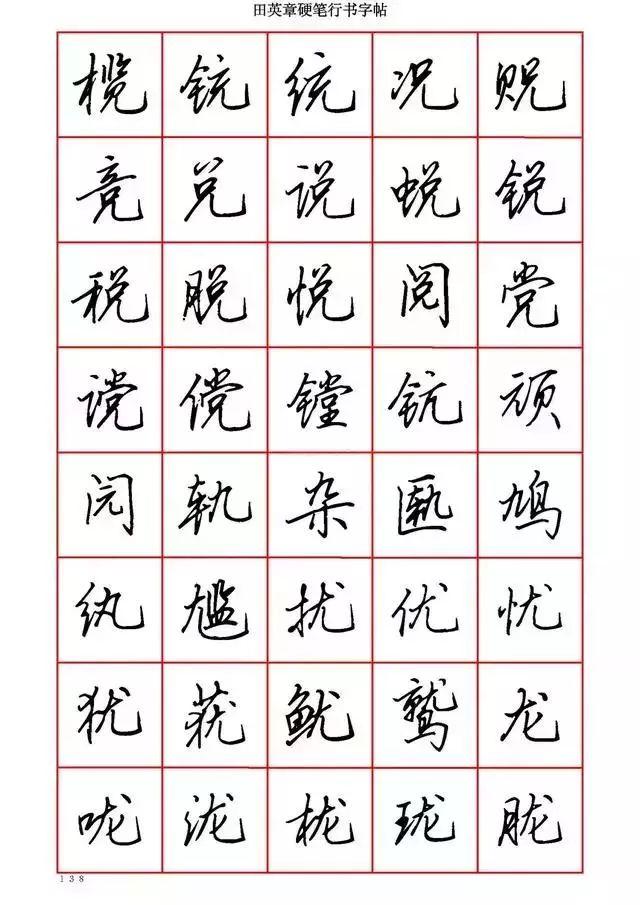 田英章硬笔行书字帖
榄 铳 统 况 贶
竞 兑 说 蜕 锐
税 脱 悦 阅 党
谠 傥 镗 钪 顽
闶 轨 杂 匦 鸠
纨 尴 扰 优 忧
犹 莸 鱿 鹫 龙
咙 泷 栊 珑 胧
138